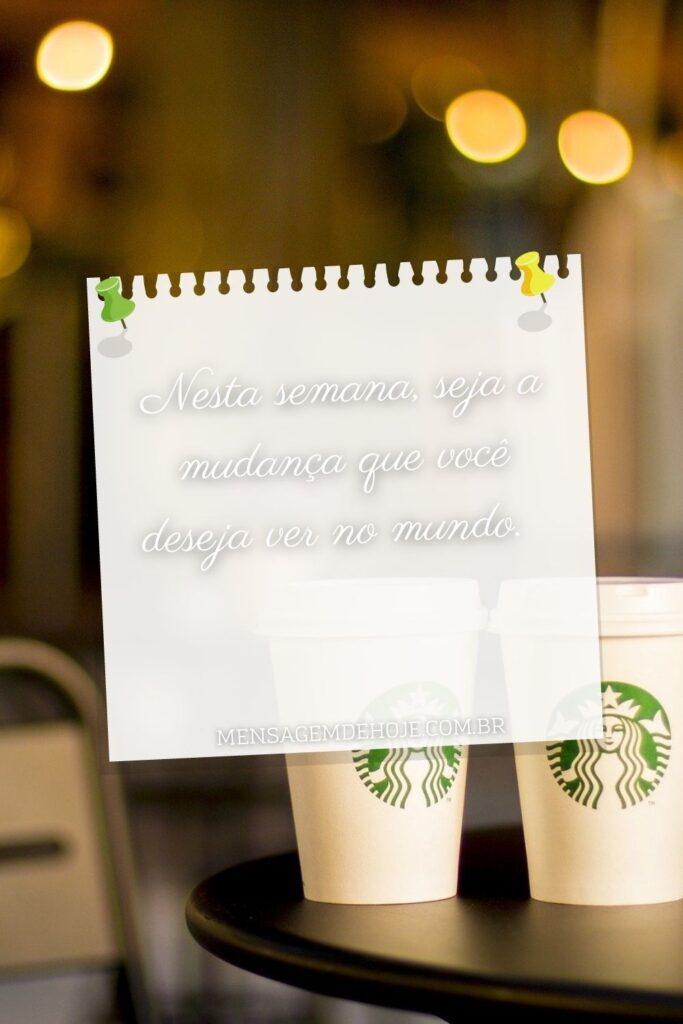 Nesta semana, seja a
mudança que você
deseja ver no mundo.
MENSAGEMDEHOJE.COM.BR